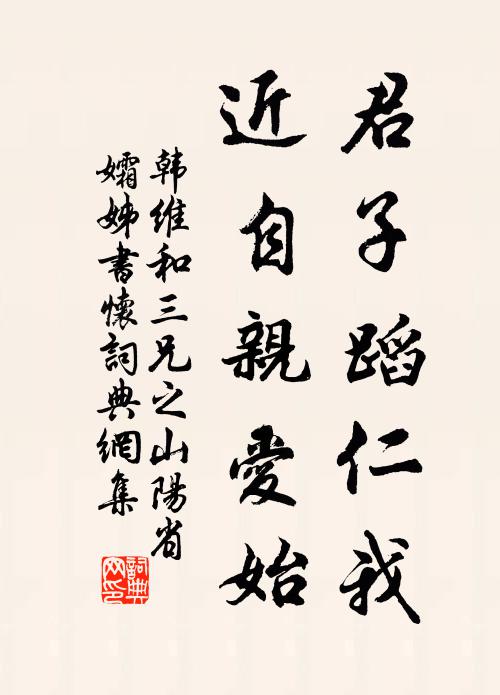 君子蹈仁我
近自親愛始
韓維和三兄之山陽省
孀姊書懷詞典網集
詞典
网印